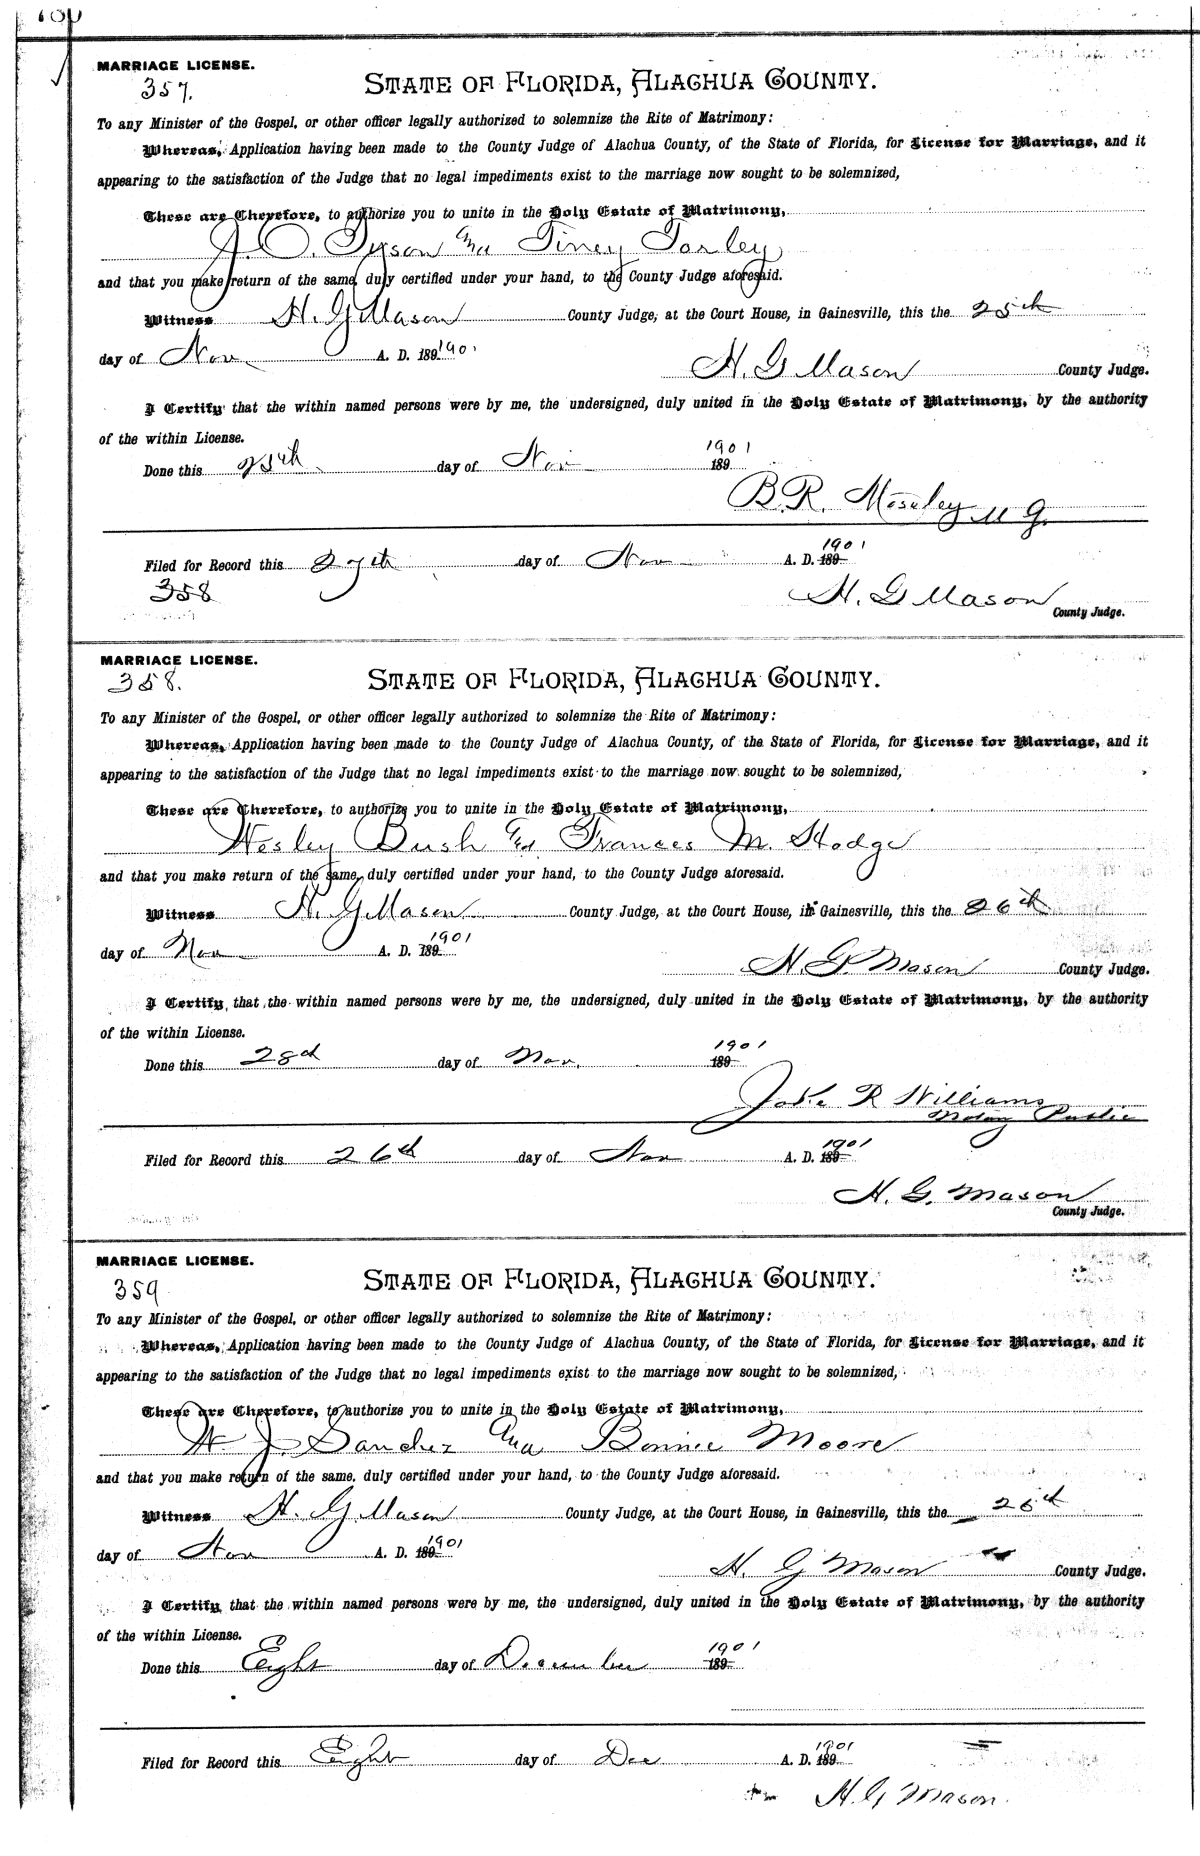 180
MARRIAGE LICENSE.
357.
STATE OF FLORIDA, ALACHUA COUNTY.
To any Minister of the Gospel, or other officer legally authorized to solemnize the Rite of Matrimony:
Whereas, Application having been made to the County Judge of Alachua County, of the State of Florida, for License for Marriage, and it
appearing to the satisfaction of the Judge that no legal impediments exist to the marriage now sought to be solemnized,
These are Therefore, to authorize you to unite in the Holy Estate of Matrimony,
J. O. Tyson and Tiney Torley
and that you make return of the same, duly certified under your hand, to the County Judge aforesaid.
Witness H. G Mason County Judge, at the Court House, in Gainesville, this the 25th
day of Nov A. D. 189 1901
H. G Mason County Judge.
I Certify that the within named persons were by me, the undersigned, duly united in the Holy Estate of Matrimony, by the authority
of the within License.
Done this 25th day of Nov 189 1901
B. R. Moseley M G.
Filed for Record this 27th day of Nov A. D. 189 1901
358
H. G Mason
County Judge.
MARRIAGE LICENSE.
358.
STATE OF FLORIDA, ALACHUA COUNTY.
To any Minister of the Gospel, or other officer legally authorized to solemnize the Rite of Matrimony:
Whereas, Application having been made to the County Judge of Alachua County, of the State of Florida, for License for Marriage, and it
appearing to the satisfaction of the Judge that no legal impediments exist to the marriage now sought to be solemnized,
These are Therefore, to authorize you to unite in the Holy Estate of Matrimony,
Wesley Bush and Frances M. Hodge
and that you make return of the same, duly certified under your hand, to the County Judge aforesaid.
Witness H. G Mason County Judge, at the Court House, in Gainesville, this the 26th
day of Nov A. D. 189 1901
H. G. Mason County Judge.
I Certify, that the within named persons were by me, the undersigned, duly united in the Holy Estate of Matrimony, by the authority
of the within License.
Done this 28d day of Nov. 189 1901
Jake R Williams
Notary Public
Filed for Record this 26th day of Nov A. D. 189 1901
H. G. Mason
County Judge.
MARRIAGE LICENSE.
359
STATE OF FLORIDA, ALACHUA COUNTY.
To any Minister of the Gospel, or other officer legally authorized to solemnize the Rite of Matrimony:
Whereas, Application having been made to the County Judge of Alachua County, of the State of Florida, for License for Marriage, and it
appearing to the satisfaction of the Judge that no legal impediments exist to the marriage now sought to be solemnized,
These are Therefore, to authorize you to unite in the Holy Estate of Matrimony,
W J Sanchez and Bonnie Moore
and that you make return of the same, duly certified under your hand, to the County Judge aforesaid.
Witness H. G Mason County Judge, at the Court House, in Gainesville, this the 26th
day of Nov A. D. 189 1901
H. G Mason County Judge.
I Certify, that the within named persons were by me, the undersigned, duly united in the Holy Estate of Matrimony, by the authority
of the within License.
Done this Eight day of December 189 1901
Filed for Record this Eight day of Dec A. D. 189 1901
H. G Mason